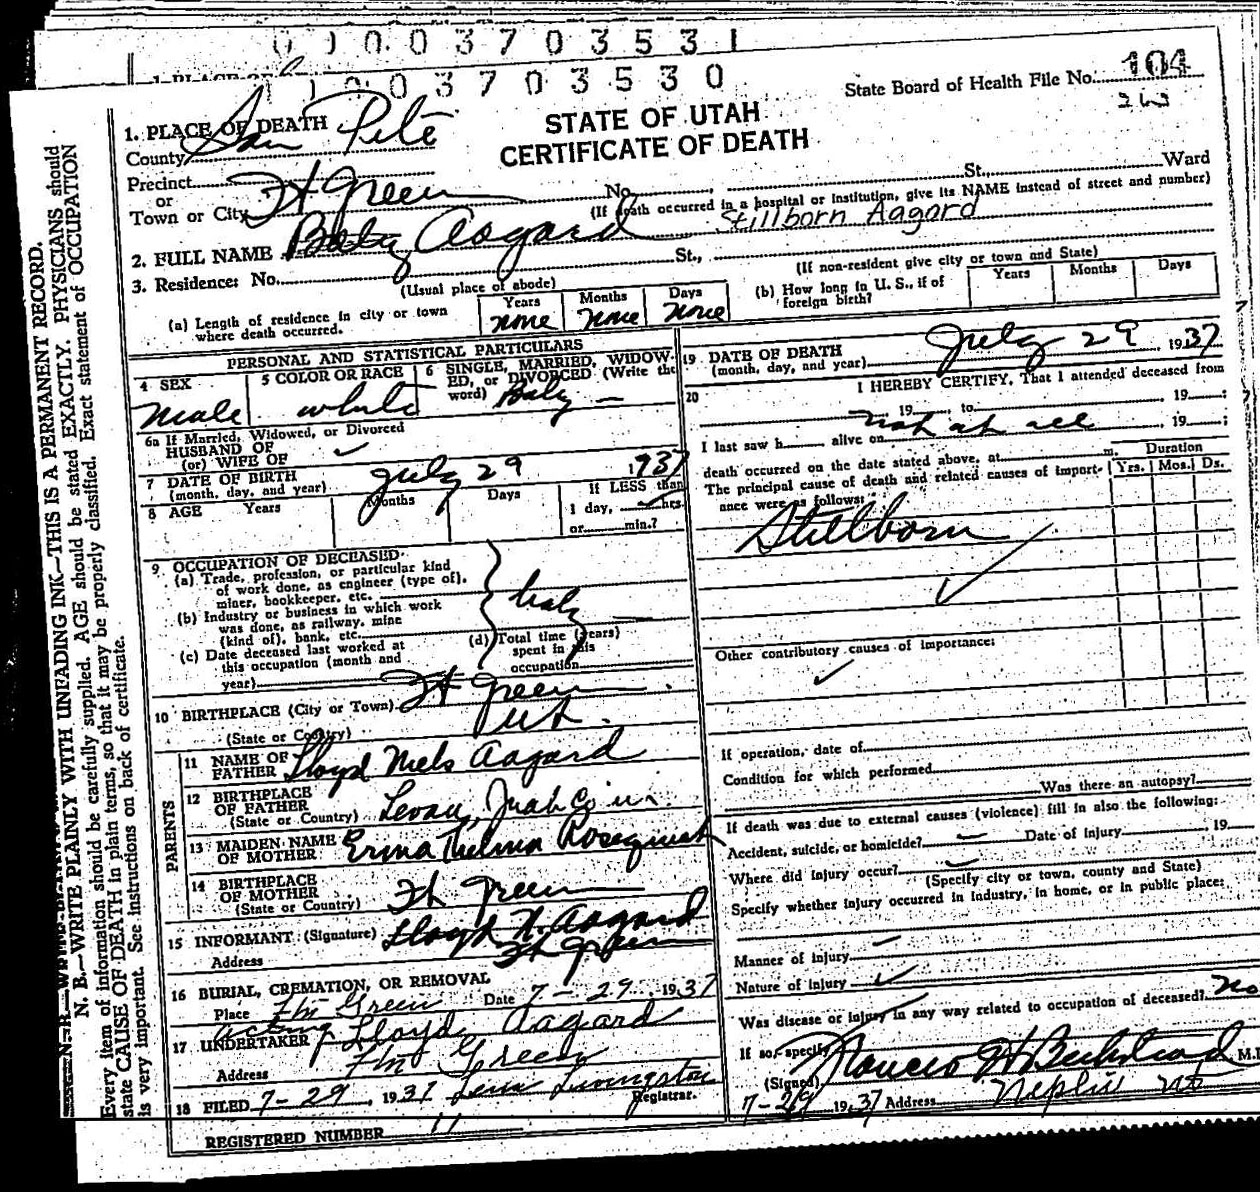 0 0 0 3 7 0 3 5 3 1
0 0 3 7 0 3 5 3 0
State Board of Health File No. 104
STATE OF UTAH
CERTIFICATE OF DEATH
1. PLACE OF DEATH
County San Pete
Precinct
or
Town or City Ft Green No. St. Ward
(If death occurred in a hospital or institution, give its NAME instead of street and number)
2. FULL NAME Baby Aagard Stillborn Aagard
3. Residence: No. St.,
(Usual place of abode) (If non-resident give city or town and State)
(a) Length of residence in city or town where death occurred. Years none Months none Days none
(b) How long in U. S., if of foreign birth? Years Months Days
PERSONAL AND STATISTICAL PARTICULARS
4 SEX Male
5 COLOR OR RACE white
6 SINGLE, MARRIED, WIDOWED, or DIVORCED (Write the word) Baby
6a If Married, Widowed, or Divorced
HUSBAND OF
(or) WIFE OF
7 DATE OF BIRTH
(month, day, and year) July 29 1937
8 AGE Years Months Days If LESS than
1 day, hrs.
or min.?
9 OCCUPATION OF DECEASED
(a) Trade, profession, or particular kind
of work done, as engineer (type of),
miner, bookkeeper, etc.
(b) Industry or business in which work
was done, as railway, mine
(kind of), bank, etc.
baby
(c) Date deceased last worked at
this occupation (month and
year)
(d) Total time (years)
spent in this
occupation
10 BIRTHPLACE (City or Town) Ft Green
(State or Country) Ut.
PARENTS
11 NAME OF
FATHER Lloyd Niels Aagard
12 BIRTHPLACE
OF FATHER
(State or Country) Levan, Juab Co
13 MAIDEN NAME
OF MOTHER Erma Thelma Rosequist
14 BIRTHPLACE
OF MOTHER
(State or Country) Ft Green
15 INFORMANT (Signature) Lloyd N. Aagard
Address Ft Green
16 BURIAL, CREMATION, OR REMOVAL
Place Ftn Green Date 7-29 1937
17 UNDERTAKER acting Lloyd Aagard
Address Ftn Green
18 FILED 7-29, 1937 Livingston
Registrar.
REGISTERED NUMBER 11
19 DATE OF DEATH
(month, day, and year) July 29 1937
20 I HEREBY CERTIFY, That I attended deceased from
19 to 19 ;
I last saw h alive on not at all, 19 ;
death occurred on the date stated above, at m.
The principal cause of death and related causes of importance were as follows:
Duration
Yrs. Mos. Ds.
Stillborn
Other contributory causes of importance:
If operation, date of
Condition for which performed
Was there an autopsy?
If death was due to external causes (violence) fill in also the following:
Accident, suicide, or homicide? Date of injury 19
Where did injury occur?
(Specify city or town, county and State)
Specify whether injury occurred in industry, in home, or in public place:
Manner of injury
Nature of injury
Was disease or injury in any way related to occupation of deceased? No
If so, specify
(Signed) M.D.
7-29 1937 Address Nephi
N. B.—WRITE PLAINLY WITH UNFADING INK—THIS IS A PERMANENT RECORD.
Every item of information should be carefully supplied. AGE should be stated EXACTLY. PHYSICIANS should
state CAUSE OF DEATH in plain terms, so that it may be properly classified. Exact statement of OCCUPATION
is very important. See instructions on back of certificate.